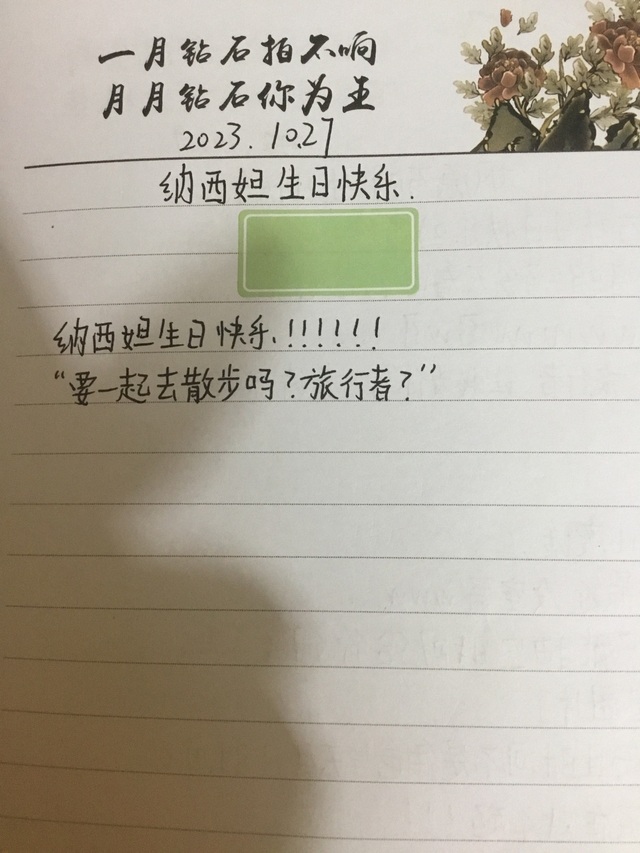 一月钻石拍不响
月月钻石你为王
2023.10.27
纳西妲生日快乐.
纳西妲生日快乐.!!!!!!
“要一起去散步吗?旅行者?”